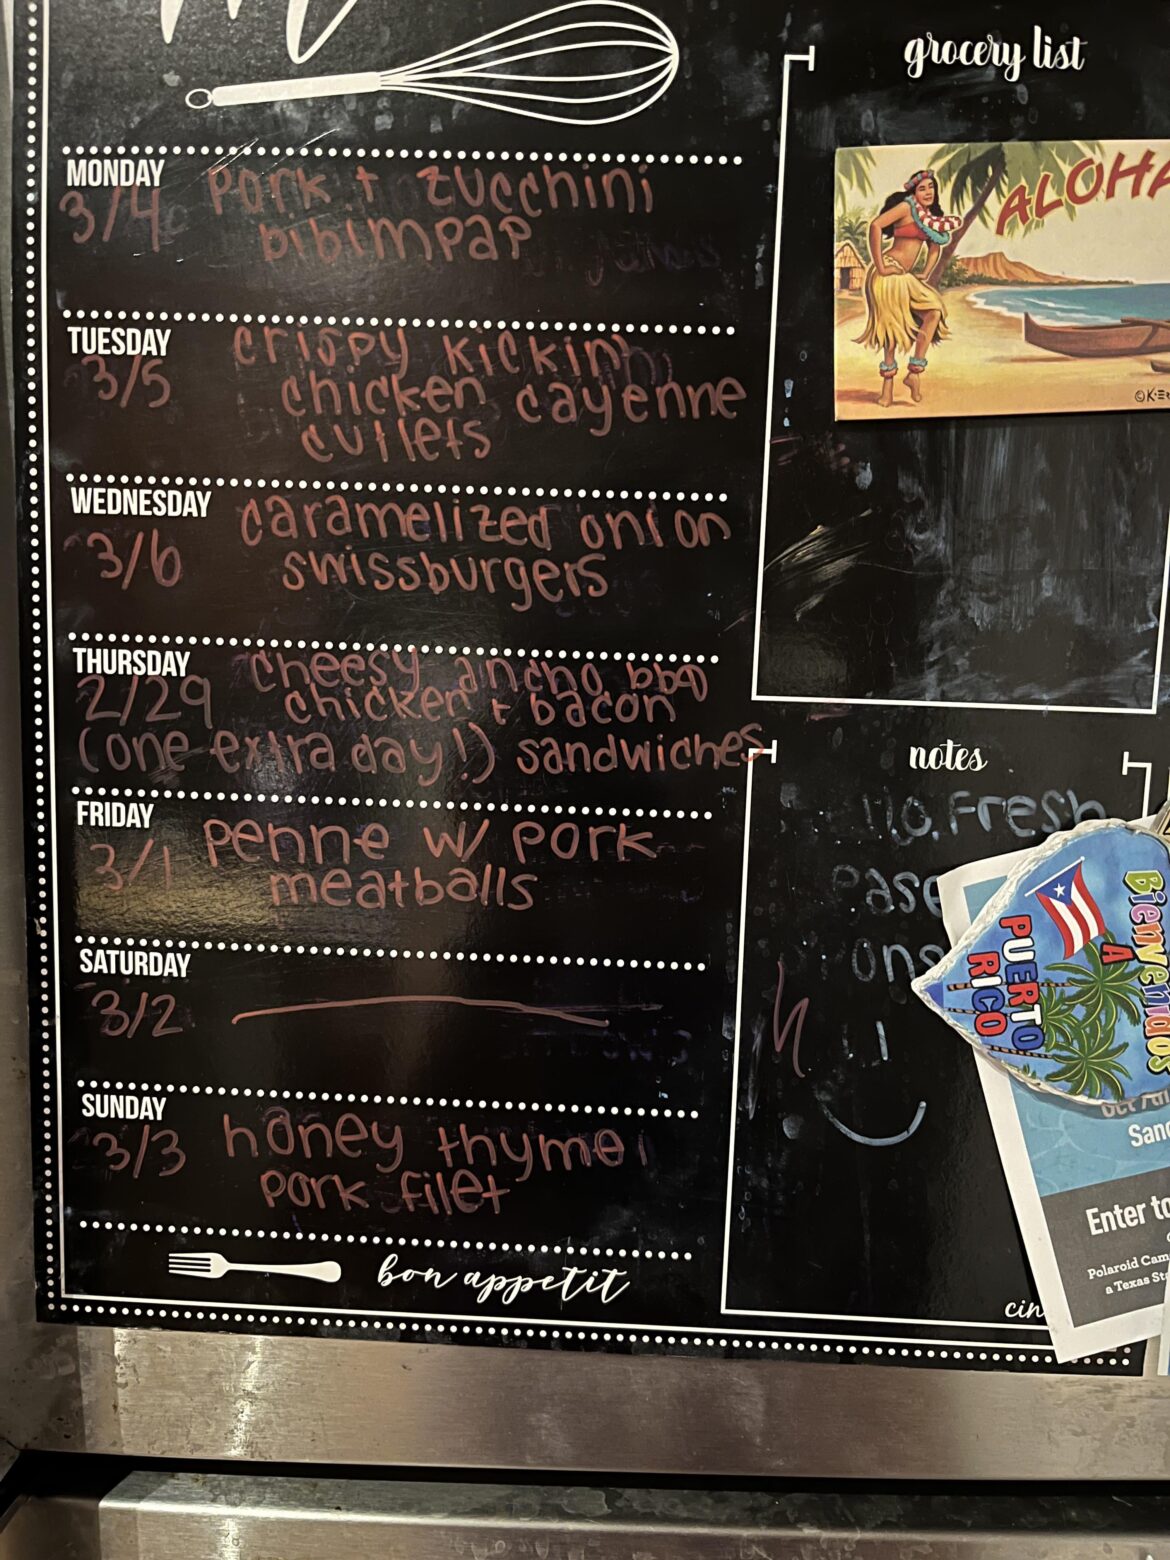 MONDAY
3/4
Pork + zucchini
bibimpap
TUESDAY
3/5
crispy kickin
chicken cayenne
cutlets
WEDNESDAY
3/6
caramelized onion
swissburgers
THURSDAY
2/29
cheesy ancho bbq
chicken + bacon
(one extra day!) sandwiches
FRIDAY
3/1
penne w/ pork
meatballs
SATURDAY
3/2
SUNDAY
3/3
honey thyme
pork filet
bon appetit
grocery list
ALOHA
notes
Fresh
Bienvenidos
A
PUERTO
RICO
Enter to
Polaroid Cam
a Texas